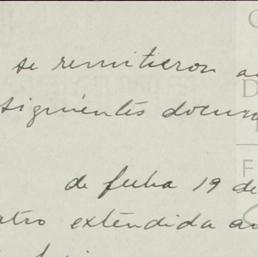 se remitieron a
siguientes docum
de fecha 19 de
tro extendida a